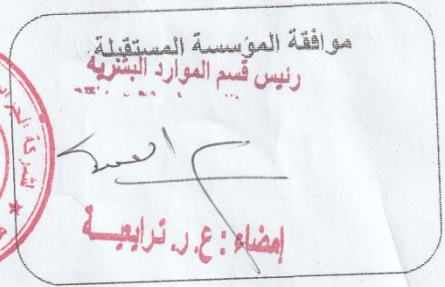 موافقة المؤسسة المستقبلة
رئيس قسم الموارد البشرية
إمضاء : ع. ر. ترايعية
شركة الجزائر